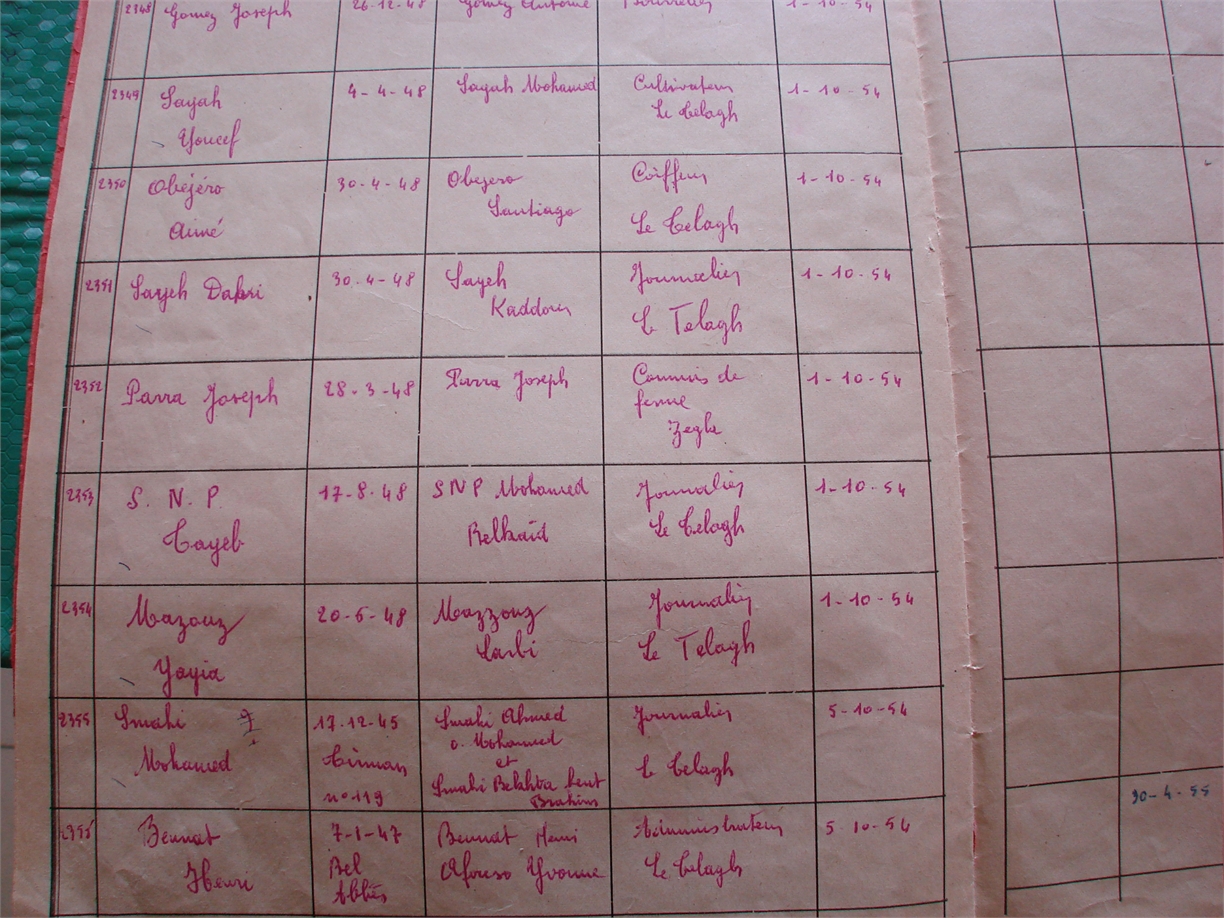 2348 Gomez Joseph 26-12-48 Gomez Antoine 1-10-54
2349 Sayah 4-4-48 Sayah Mohamed Cultivateur 1-10-54
Youcef Le Telagh
2350 Obéjéro 30-4-48 Obejero Coiffeur 1-10-54
Aimé Santiago Le Telagh
2351 Sayeh Dakri 30-4-48 Sayeh Journalier 1-10-54
Kaddour Le Telagh
2352 Parra Joseph 28-3-48 Parra Joseph Commis de 1-10-54
ferme
Zegla
2353 S. N. P. 17-8-48 SNP Mohamed Journalier 1-10-54
Tayeb Belkaïd Le Telagh
2354 Mazouz 20-5-48 Mazzouz Journalier 1-10-54
Yayia Larbi Le Telagh
2355 Smahi 17-12-45 Smahi Ahmed Journalier 5-10-54
o. Mohamed
Mohamed et Le Telagh
nº 119 Smahi Belkhta bent
Brahim 30-4-55
2355 Bennat 7-1-47 Bennat Henri Administrateur 5-10-54
Henri Bel Afonso Yvonne Le Telagh
Abbès